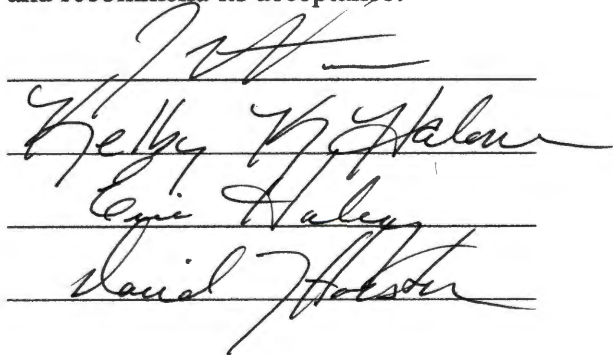 and recommend its acceptance:
Kelby K. Halone
Eric Haley
David